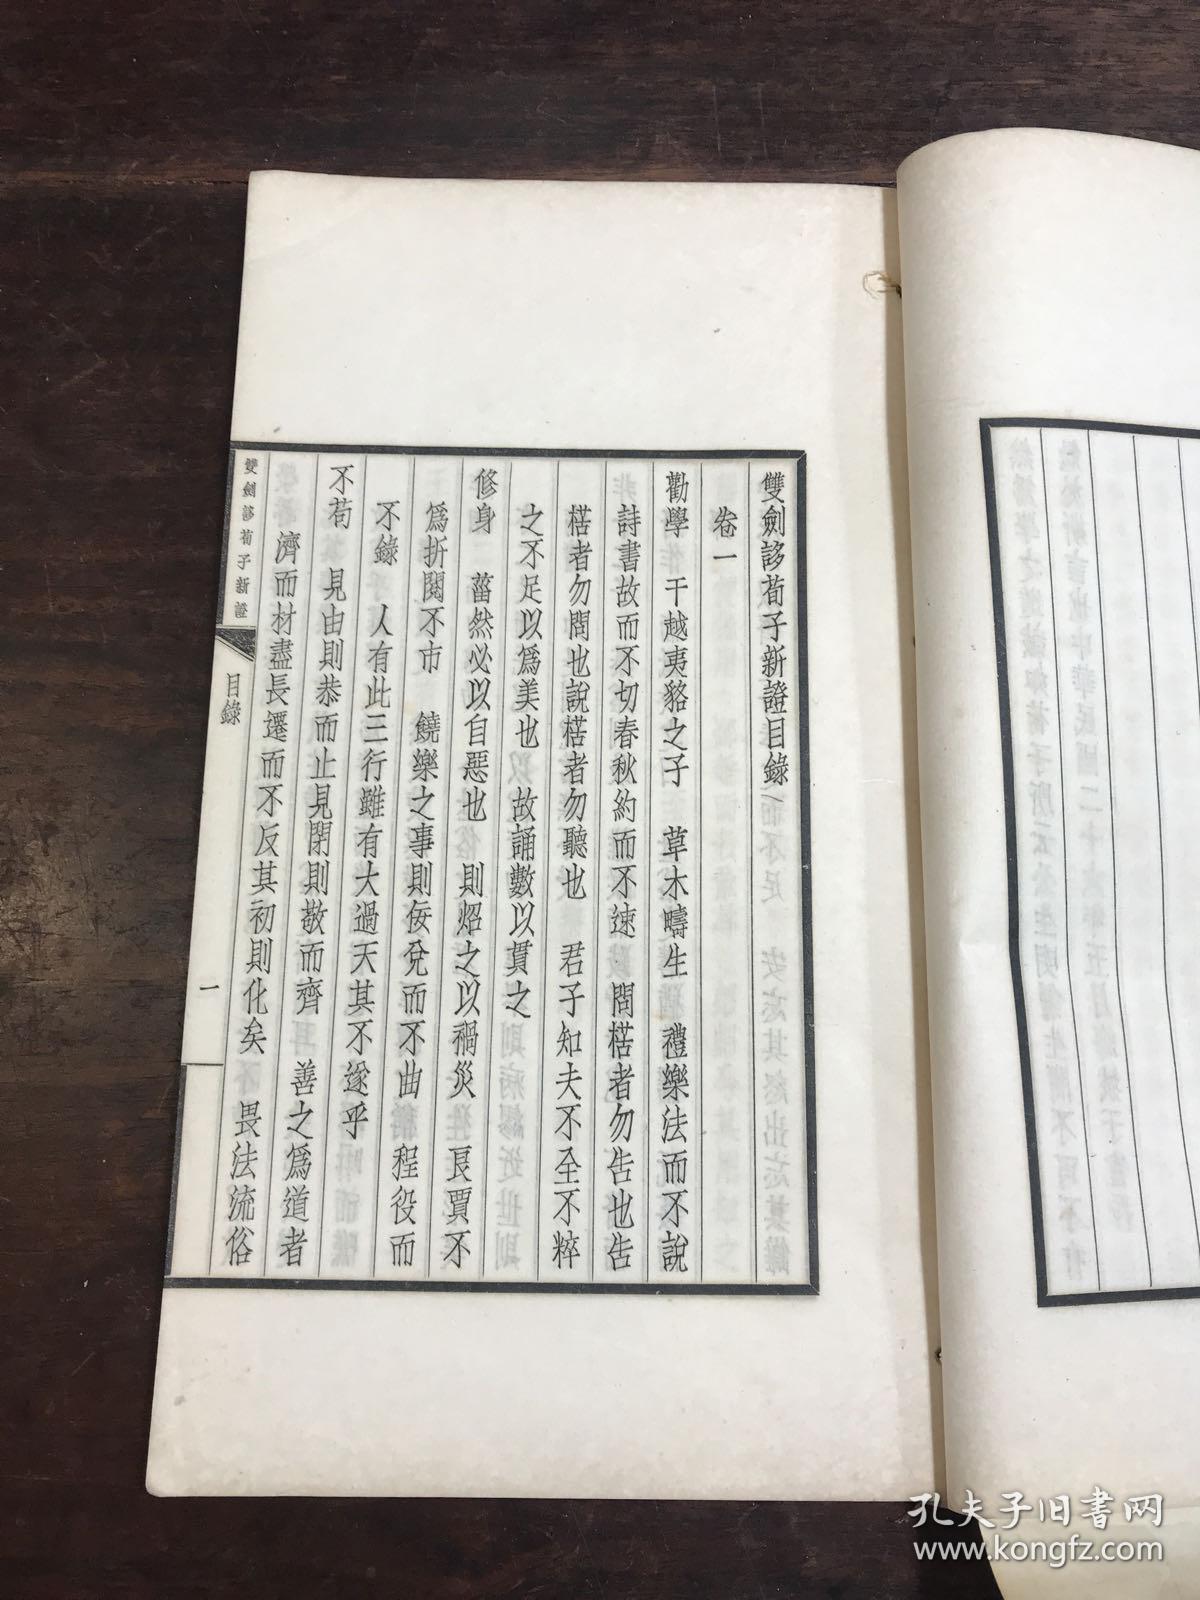 雙劍誃荀子新證目錄
卷一
勸學 干越夷貉之子 草木疇生 禮樂法而不說
詩書故而不切春秋約而不速 問楛者勿告也告
楛者勿問也說楛者勿聽也 君子知夫不全不粹
之不足以爲美也 故誦數以貫之
修身 菑然必以自惡也 則炤之以禍災 良賈不
爲折閱不市 饒樂之事則佞兌而不曲 程役而
不錄 人有此三行雖有大過天其不遂乎
不苟 見由則恭而止見閉則敬而齊 善之爲道者
濟而材盡長遷而不反其初則化矣 畏法流俗
雙劍誃荀子新證
目錄
一
孔夫子旧書网
www.kongfz.com